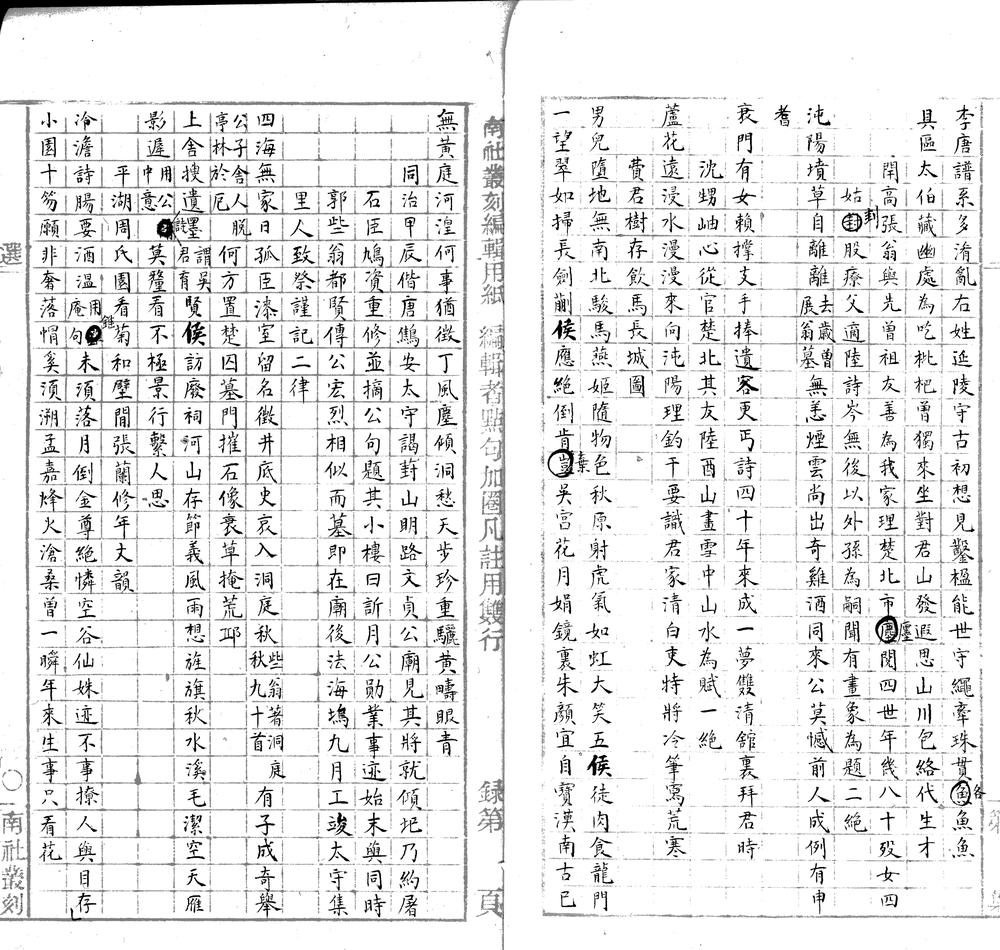 李唐譜系多淆亂右姓延陵守古初想見鑿楹能世守繩牽珠貫魚魚魚
各
具區太伯藏幽處為吃枇杷曾獨來坐對君山發遐思山川包絡代生才
閈高張翁與先曾祖友善為我家理楚北市廛閱四世年幾八十歿女四
廛
姑封股療父適陸詩岑無後以外孫為嗣聞有畫象為題二絕
刲
沌陽墳草自離離去歲曾展翁墓無恙煙雲尚出奇雞酒同來公莫憾前人成例有申
耆
衰門有女賴撐支手捧遺容更丐詩四十年來成一夢雙清館裏拜君時
沈甥岫心從官楚北其友陸酉山畫雪中山水為賦一絕
蘆花遠浸水漫漫來向沌陽理釣干要識君家清白吏特將冷筆寫荒寒
費君樹存飲馬長城圖
男兒墮地無南北駿馬燕姬隨物色秋原射虎氣如虹大笑五侯徒肉食龍門
一望翠如掃長劍蒯侯應絕倒肯豈吳宮花月娟鏡裏朱顏宜自寶漢南古已
棄
南社叢刻編輯用紙 編輯者點句加圈凡註用雙行 錄第 頁
無黃庭河湟何事猶徵丁風塵傾洞愁天步珍重驪黃疇眼青
同治甲辰偕唐鷦安太守謁葑山明路文貞公廟見其將就傾圯乃約屠
石臣鳩資重修並摘公句題其小樓曰訢月公勛業事迹始末與同時
郭些翁都賢傳公宏烈相似而墓即在廟後法海塢九月工竣太守集
里人致祭謹記二律
四海無家日孤臣漆室留名徵井底史哀入洞庭秋些翁著洞庭秋九十首有子成奇舉
公子舍人脫亭林於厄何方置楚囚墓門摧石像衰草掩荒邱
上舍搜遺墨謂吳君有賢侯訪廢祠河山存節義風雨想旌旗秋水溪毛潔空天雁
影遲中用公意莫釐看不極景行繫人思
註
平湖周氏園看菊和壁間張蘭修年丈韻
冷澹詩腸要酒溫用庵句未須落月倒金尊絕憐空谷仙姝迹不事撩人與目存
錐
小園十笏願非奢落帽奚須溯孟嘉烽火滄桑曾一瞬年來生事只看花
選 〇 南社叢刻